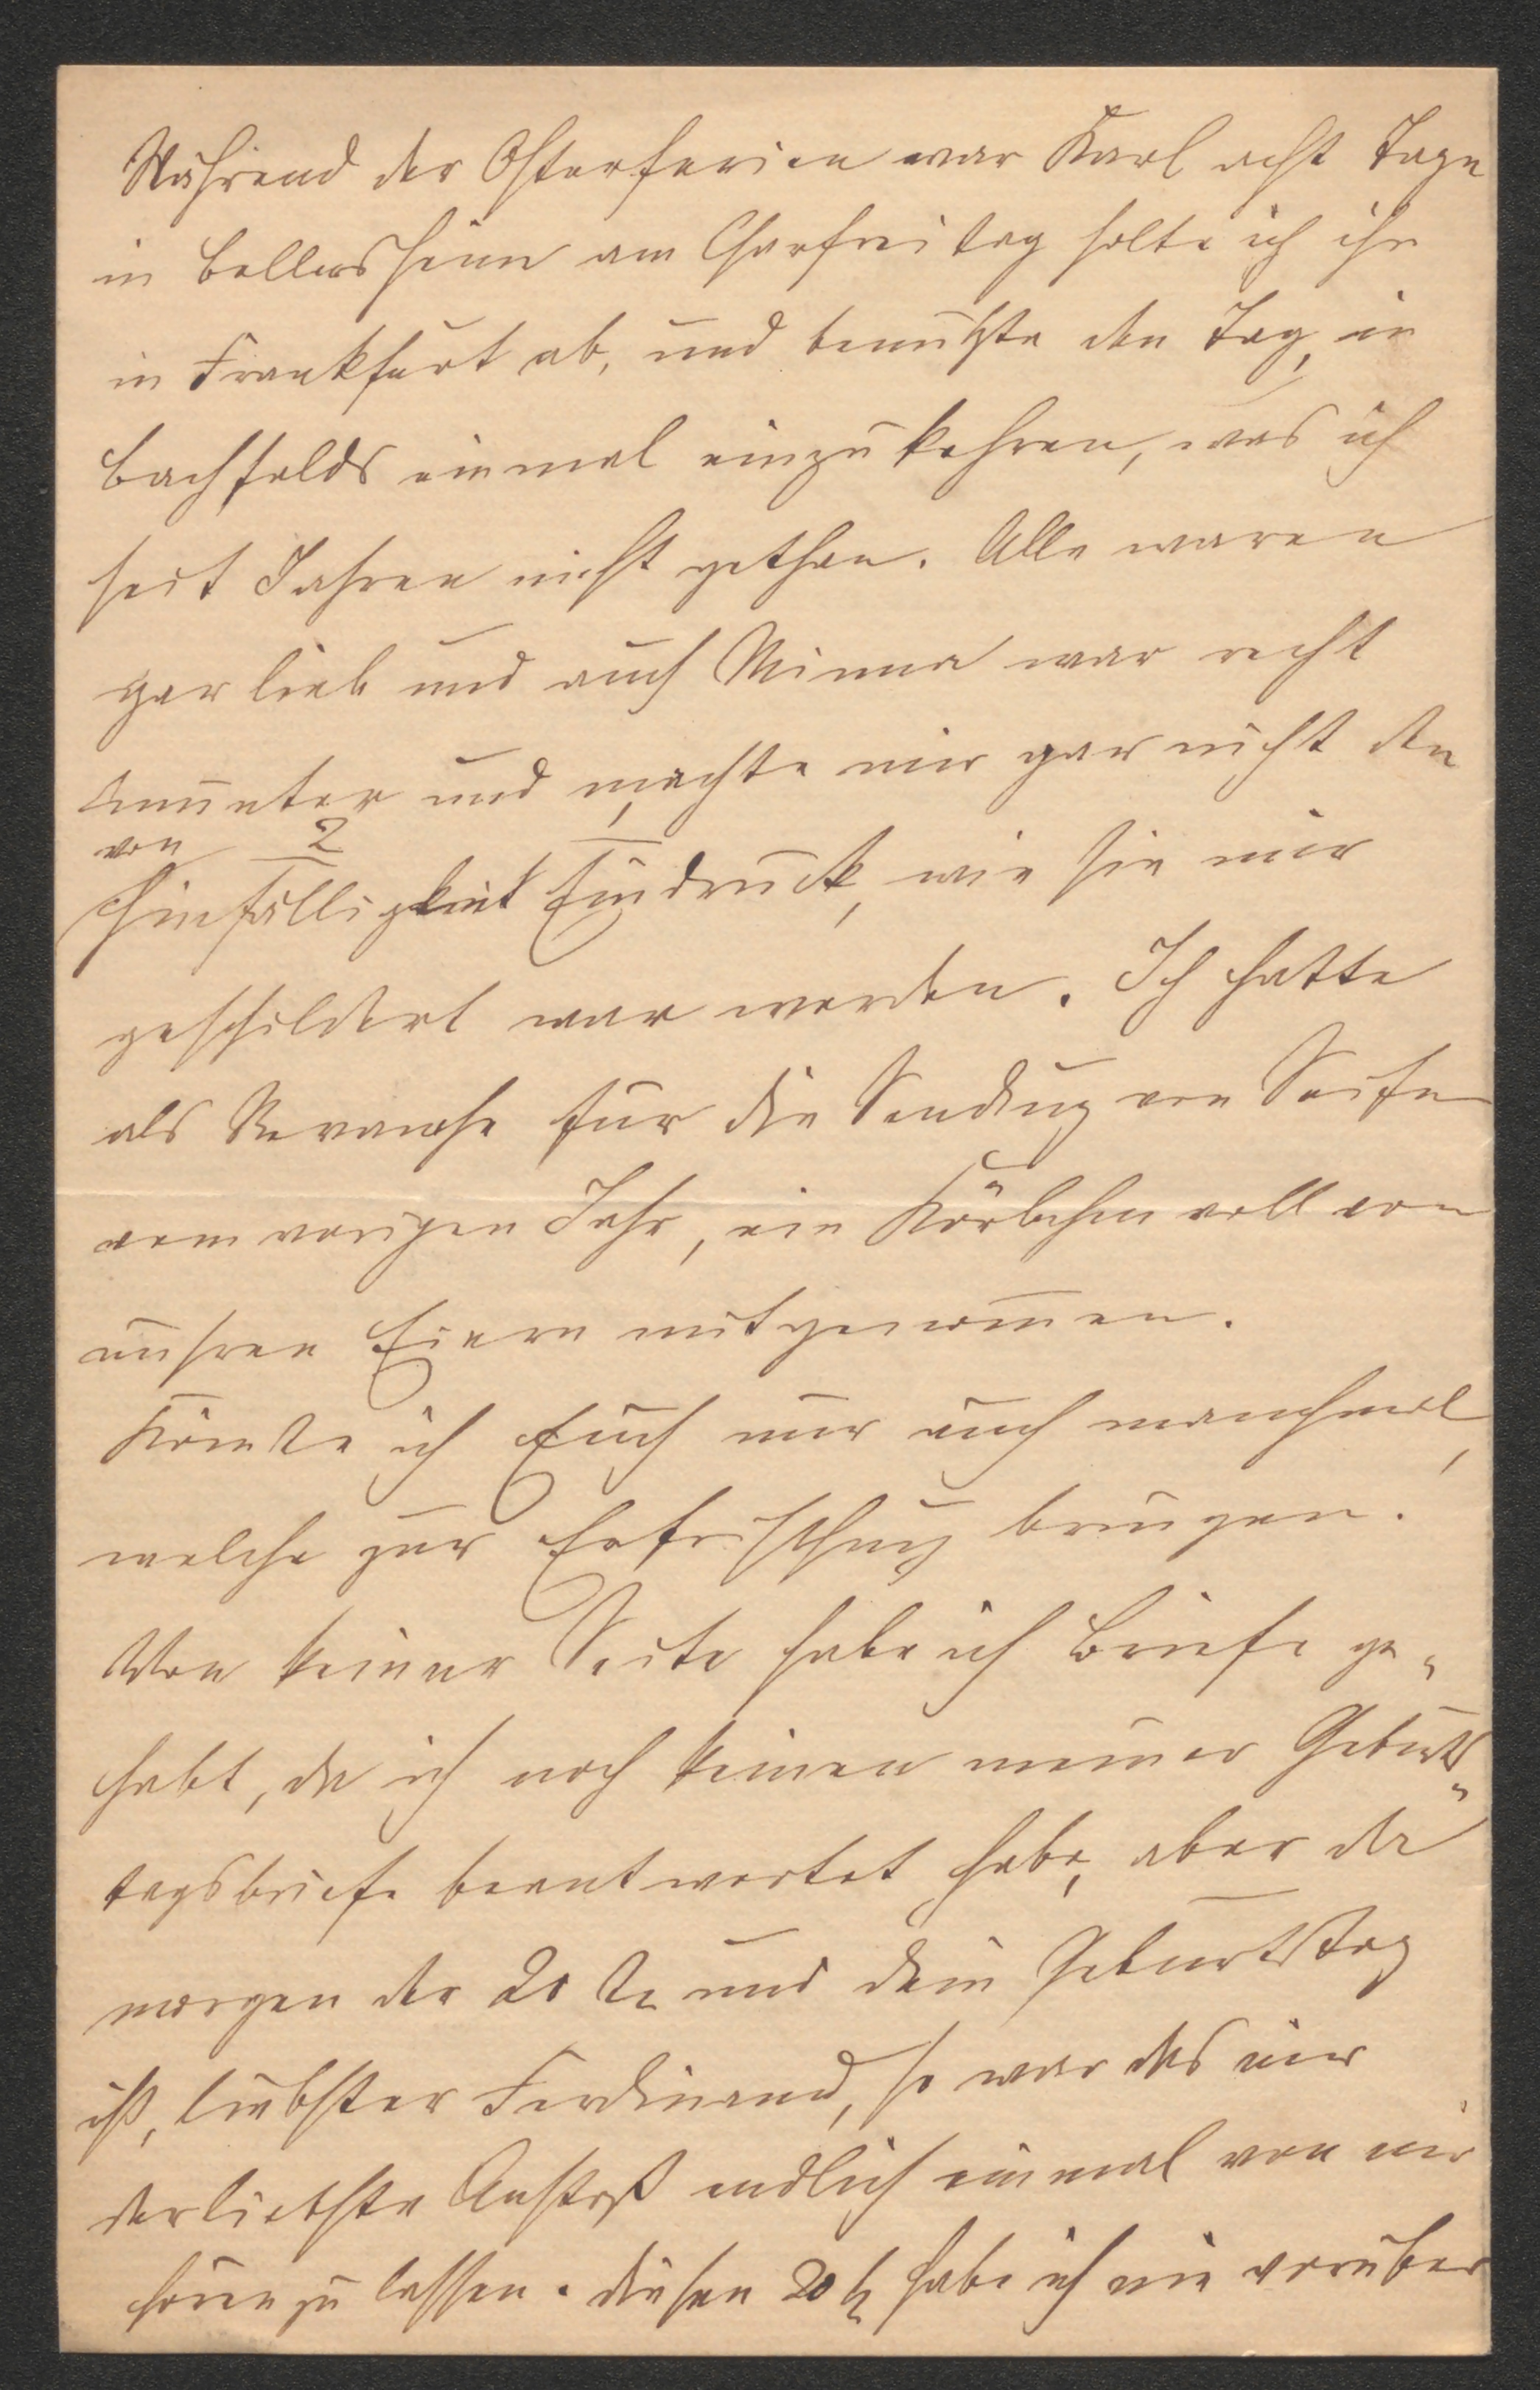 Während der Osterferien war Karl acht Tage
in Bellersheim am Charfreitag holte ich ihn
in Frankfurt ab, und benutzte den Tag, in
Bachfelds einmal einzukehren, was ich
seit Jahren nicht gethan. Alle waren
gar lieb und auch Minna war recht
munter und machte mir gar nicht den
von 2
Hinfälligkeit Eindruck, wie sie mir
geschildert war worden. Ich hatte
als Revanche für die Sendung von Seife
vom vorigen Jahr, ein Körbchen voll von
unsren Eiern mitgenommen.
Könnte ich Euch nur auch manchmal,
welche zur Erfrischung bringen.
Von keiner Seite habe ich Briefe ge-
habt, da ich noch keinen meiner Geburts-
tagsbriefe beantwortet habe, aber da
morgen der 20te und dein Geburtstag
ist, liebster Ferdinand, so war das mir
der liebste Anstoß endlich einmal von mir
hören zu lassen. Diesen 20t habe ich nie vorüber